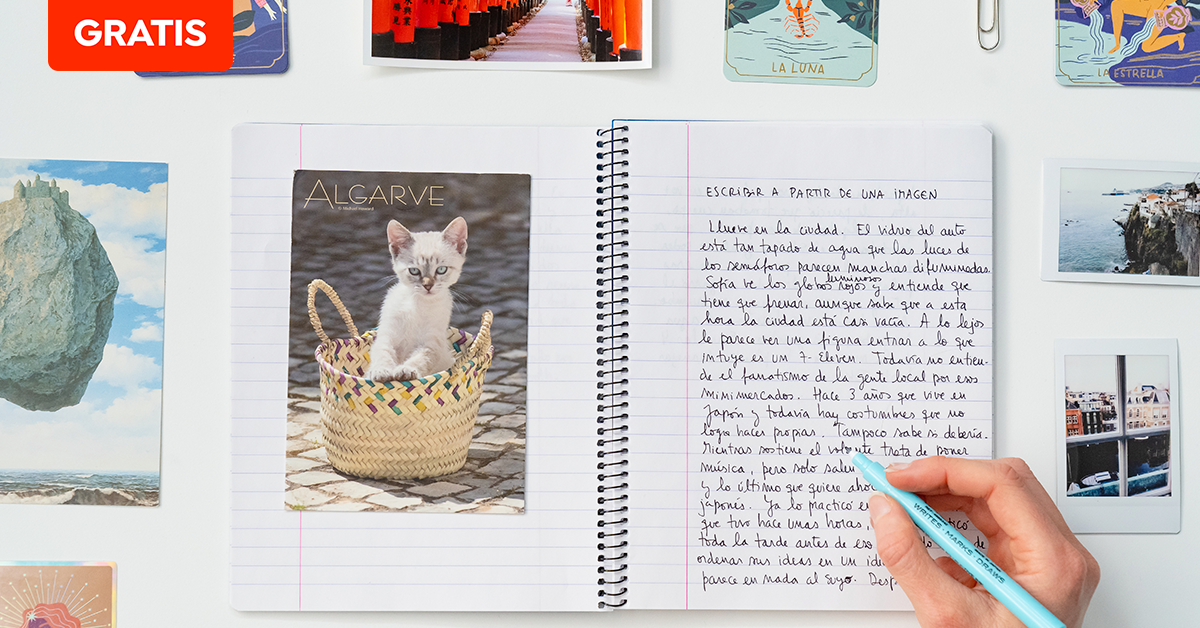 GRATIS
LA LUNA
LA ESTRELLA
ALGARVE
ESCRIBIR A PARTIR DE UNA IMAGEN
Llueve en la ciudad. El vidrio del auto
está tan tapado de agua que las luces de
los semáforos parecen manchas difuminadas.
luminosos
Sofía ve los globos rojos y entiende que
tiene que frenar, aunque sabe que a esta
hora la ciudad está casi vacía. A lo lejos
le parece ver una figura entrar a lo que
intuye es un 7-Eleven. Todavía no entien-
de el fanatismo de la gente local por esos
minimercados. Hace 3 años que vive en
Japón y todavía hay costumbres que no
logra hacer propias. Tampoco sabe si debería.
Mientras sostiene el volante trata de poner
música, pero solo salen
y lo último que quiere
japonés. Ya lo practicó
que tuvo hace unas horas,
toda la tarde antes de eso
ordenar sus ideas en un
parece en nada al suyo.
WRITES·MARKS·DRAWS